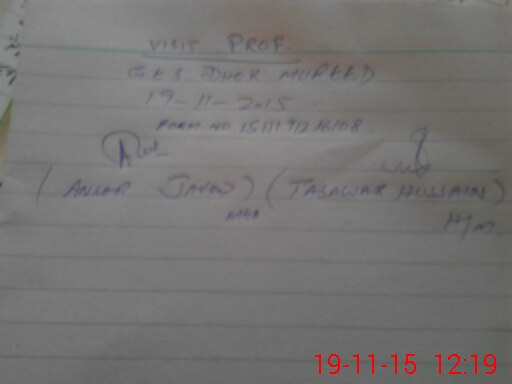 VISIT PROF.
GES DHOK MUREED
19-11-2015
FORM NO
(ANSAR JAVED) (TASAWAR HUSSAIN)
H/m.
19-11-15 12:19